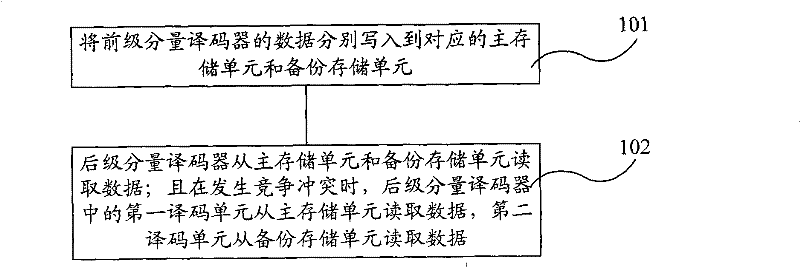 将前级分量译码器的数据分别写入到对应的主存
储单元和备份存储单元
101
后级分量译码器从主存储单元和备份存储单元读
取数据；且在发生竞争冲突时，后级分量译码器
中的第一译码单元从主存储单元读取数据，第二
译码单元从备份存储单元读取数据
102